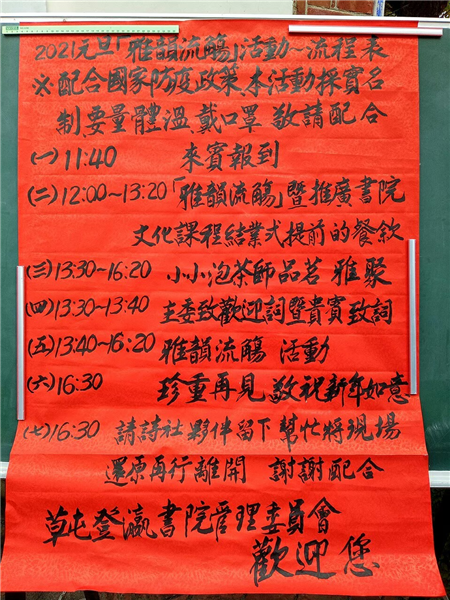 2021元旦「雅韻流觴」活動~流程表
※配合國家防疫政策、本活動採實名
制要量體溫、戴口罩 敬請配合
(一) 11:40 來賓報到
(二) 12:00~13:20「雅韻流觴」暨推廣書院
文化課程結業式提前的餐敘
(三) 13:30~16:20 小小泡茶師品茗 雅聚
(四) 13:30~13:40 主委致歡迎詞暨貴賓致詞
(五) 13:40~16:20 雅韻流觴 活動
(六) 16:30 珍重再見 敬祝新年如意
(七) 16:30 請詩社夥伴留下幫忙將現場
還原再行離開 謝謝配合
草屯登瀛書院管理委員會
歡迎您